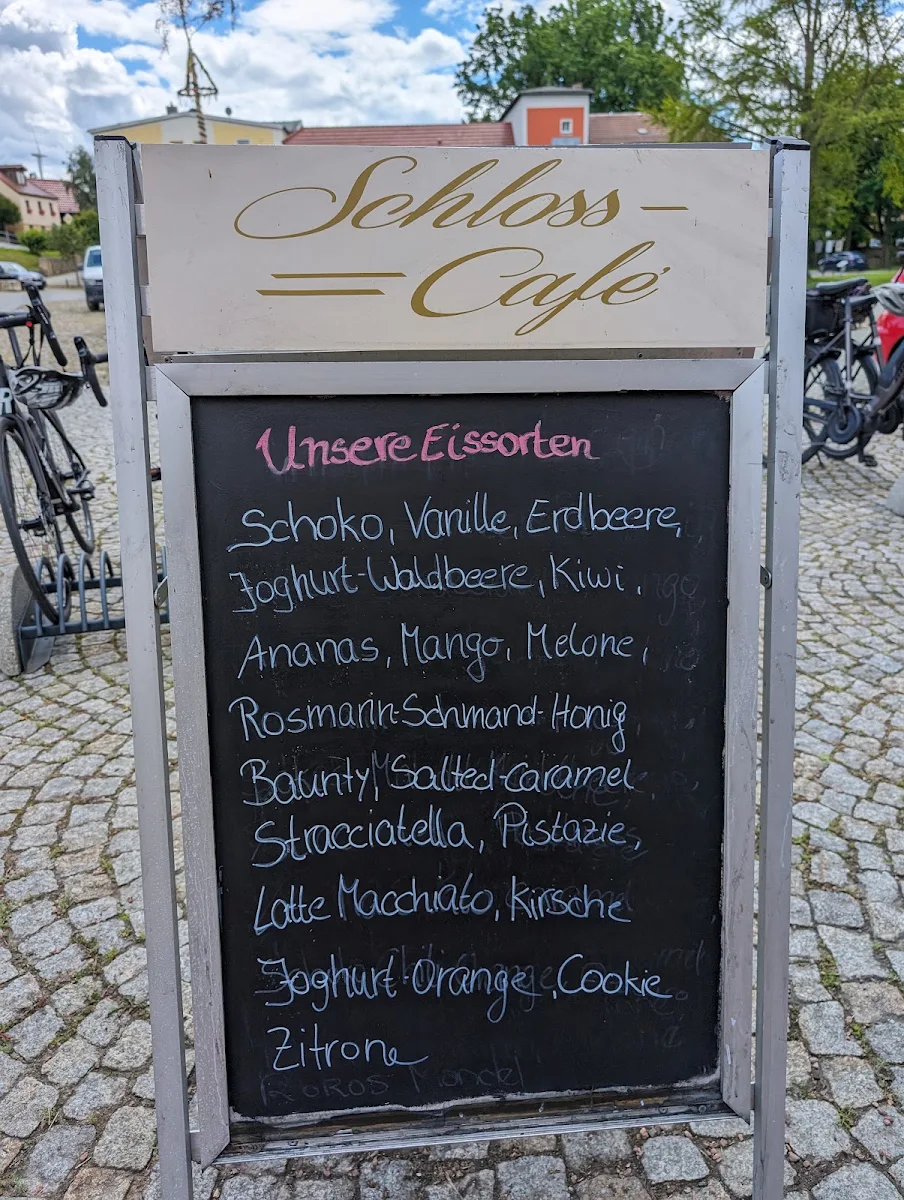 Schloss-
Café
Unsere Eissorten
Schoko, Vanille, Erdbeere,
Joghurt-Waldbeere, Kiwi,
Ananas, Mango, Melone,
Rosmarin-Schmand-Honig
Bounty, Salted-Caramel
Stracciatella, Pistazie,
Latte Macchiato, Kirsche
Joghurt-Orange, Cookie
Zitrone